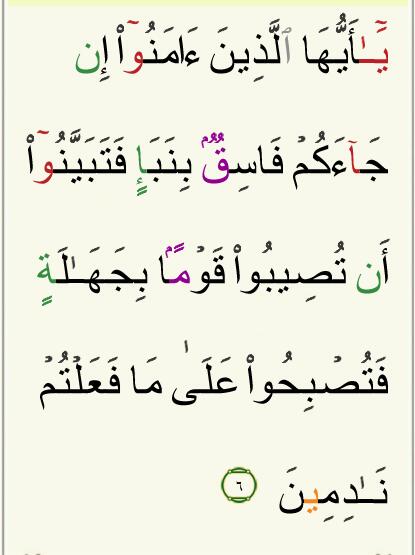 يَـٰٓأَيُّهَا ٱلَّذِينَ ءَامَنُوٓا۟ إِن
جَآءَكُمْ فَاسِقٌۢ بِنَبَإٍ فَتَبَيَّنُوٓا۟
أَن تُصِيبُوا۟ قَوْمًۢا بِجَهَـٰلَةٍ
فَتُصْبِحُوا۟ عَلَىٰ مَا فَعَلْتُمْ
نَـٰدِمِينَ ٦